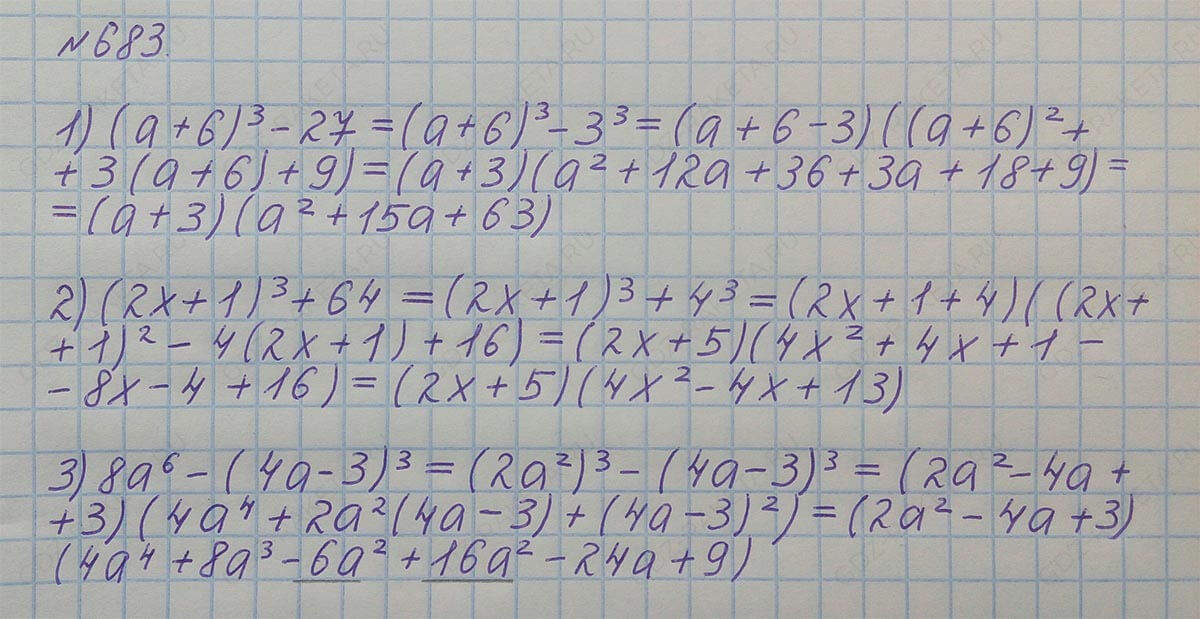 №683.
1) (a+6)³-27=(a+6)³-3³=(a+6-3)((a+6)²+
+3(a+6)+9)=(a+3)(a²+12a+36+3a+18+9)=
=(a+3)(a²+15a+63)
2) (2x+1)³+64=(2x+1)³+4³=(2x+1+4)((2x+
+1)²-4(2x+1)+16)=(2x+5)(4x²+4x+1-
-8x-4+16)=(2x+5)(4x²-4x+13)
3) 8a⁶-(4a-3)³=(2a²)³-(4a-3)³=(2a²-4a+
+3)(4a⁴+2a²(4a-3)+(4a-3)²)=(2a²-4a+3)
(4a⁴+8a³-6a²+16a²-24a+9)